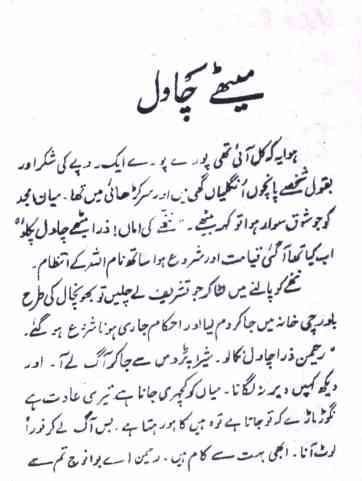 میٹھے چاول
ہوا یہ کہ کل آئی تھی پورے پورے ایک روپے کی شکر اور
بقول شخصے پانچوں انگلیاں گھی میں اور سر کڑھائی میں تھا۔ میاں مجد
کو جو شوق سوار ہوا تو کہہ بیٹھے۔ "ننھے کی اماں! ذرا میٹھے چاول پکاؤ"
اب کیا تھا آ گئی قیامت اور شروع ہوا ساتھ نام اللہ کے انتظام۔
ننھے کو پالنے میں لٹا کر جو تشریف لے چلیں تو بھونچال کی طرح
باورچی خانہ میں جا کر دم لیا اور احکام جاری ہونا شروع ہو گئے۔
"رحیمن ذرا چاول نکالو۔ شبّو پڑوس سے جا کر آگ لے آ۔ اور
دیکھ کہیں دیر نہ لگانا۔ میاں کو کچہری جانا ہے تیری عادت ہے
نگوڑ ماڑے کہ تو جاتا ہے تو وہیں کا ہو رہتا ہے۔ بس آگ لے کر فوراً
لوٹ آنا۔ ابھی بہت سے کام ہیں۔ رحیمن اے بوا نوج تم سے